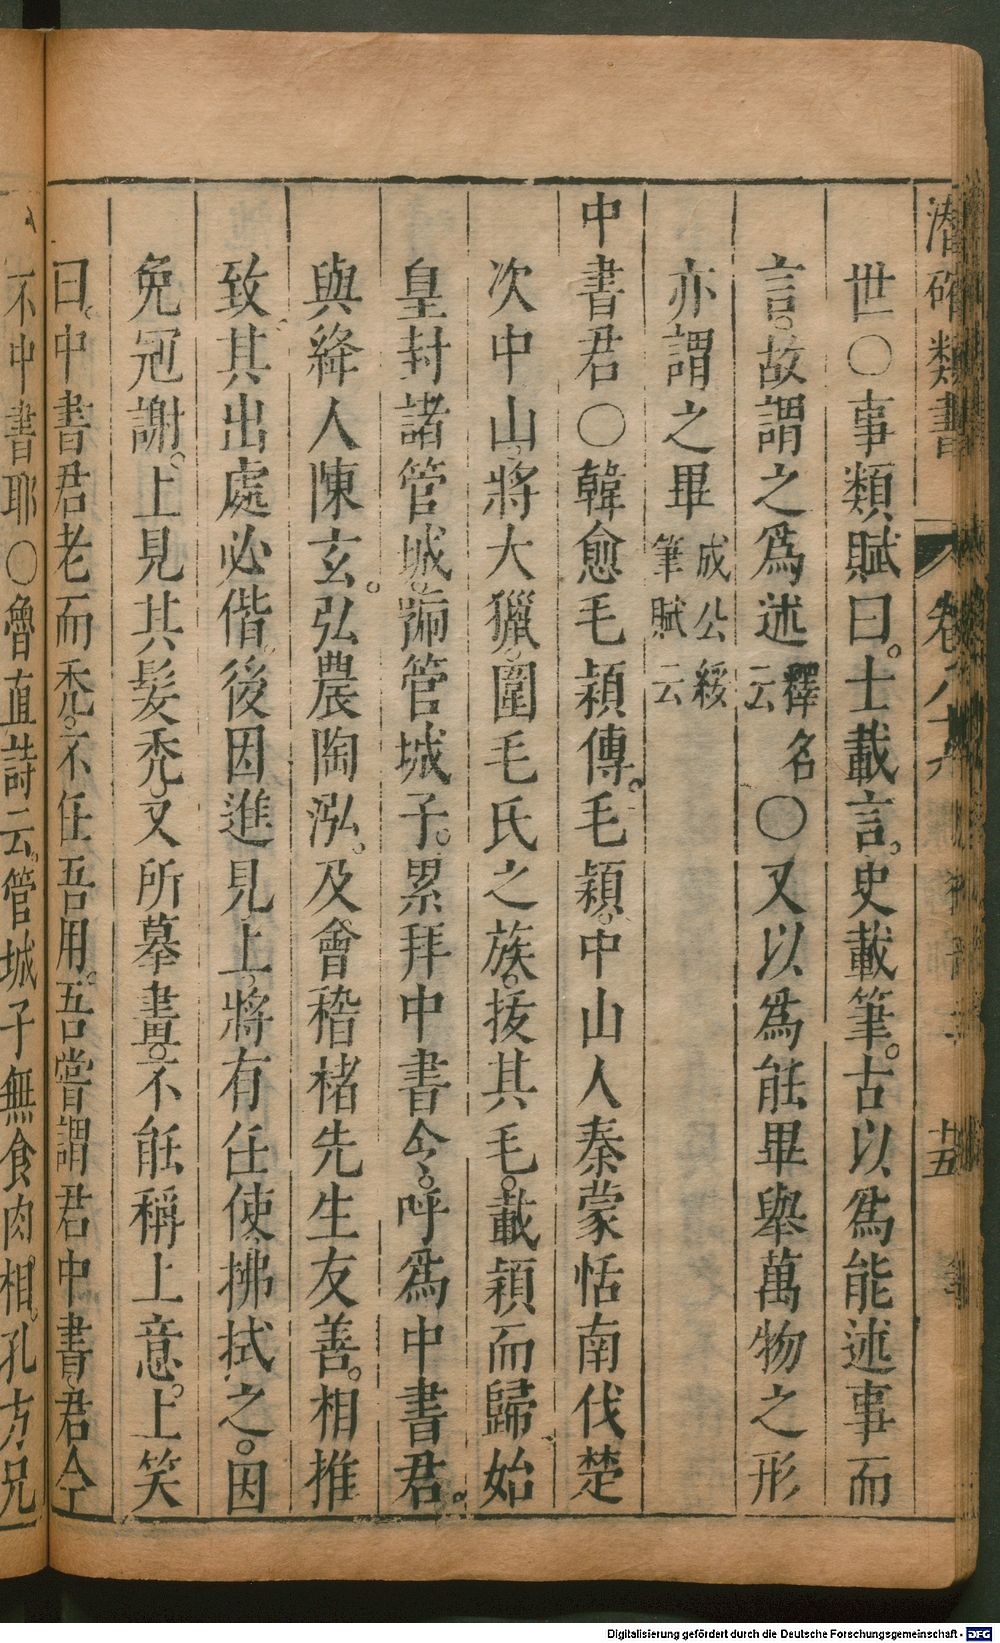 潜確類書 卷八十九 十五
世○事類賦曰。士載言。史載筆。古以爲能述事而
言。故謂之爲述釋名云○又以爲能畢舉萬物之形
亦謂之畢成公綏筆賦云
中書君○韓愈毛穎傳。毛穎。中山人秦蒙恬南伐楚
次中山。將大獵。圍毛氏之族。拔其毛。載穎而歸始
皇封諸管城。號管城子。累拜中書令。呼爲中書君。
與絳人陳玄。弘農陶泓。及會稽楮先生友善。相推
致其出處必偕。後因進見上。將有任使。拂拭之。因
免冠謝。上見其髮禿。又所摹畫。不能稱上意。上笑
曰。中書君老而禿。不任吾用。吾嘗謂君中書。君今
不中書耶○魯直詩云。管城子無食肉相。孔方兄
Digitalisierung gefördert durch die Deutsche Forschungsgemeinschaft - DFG